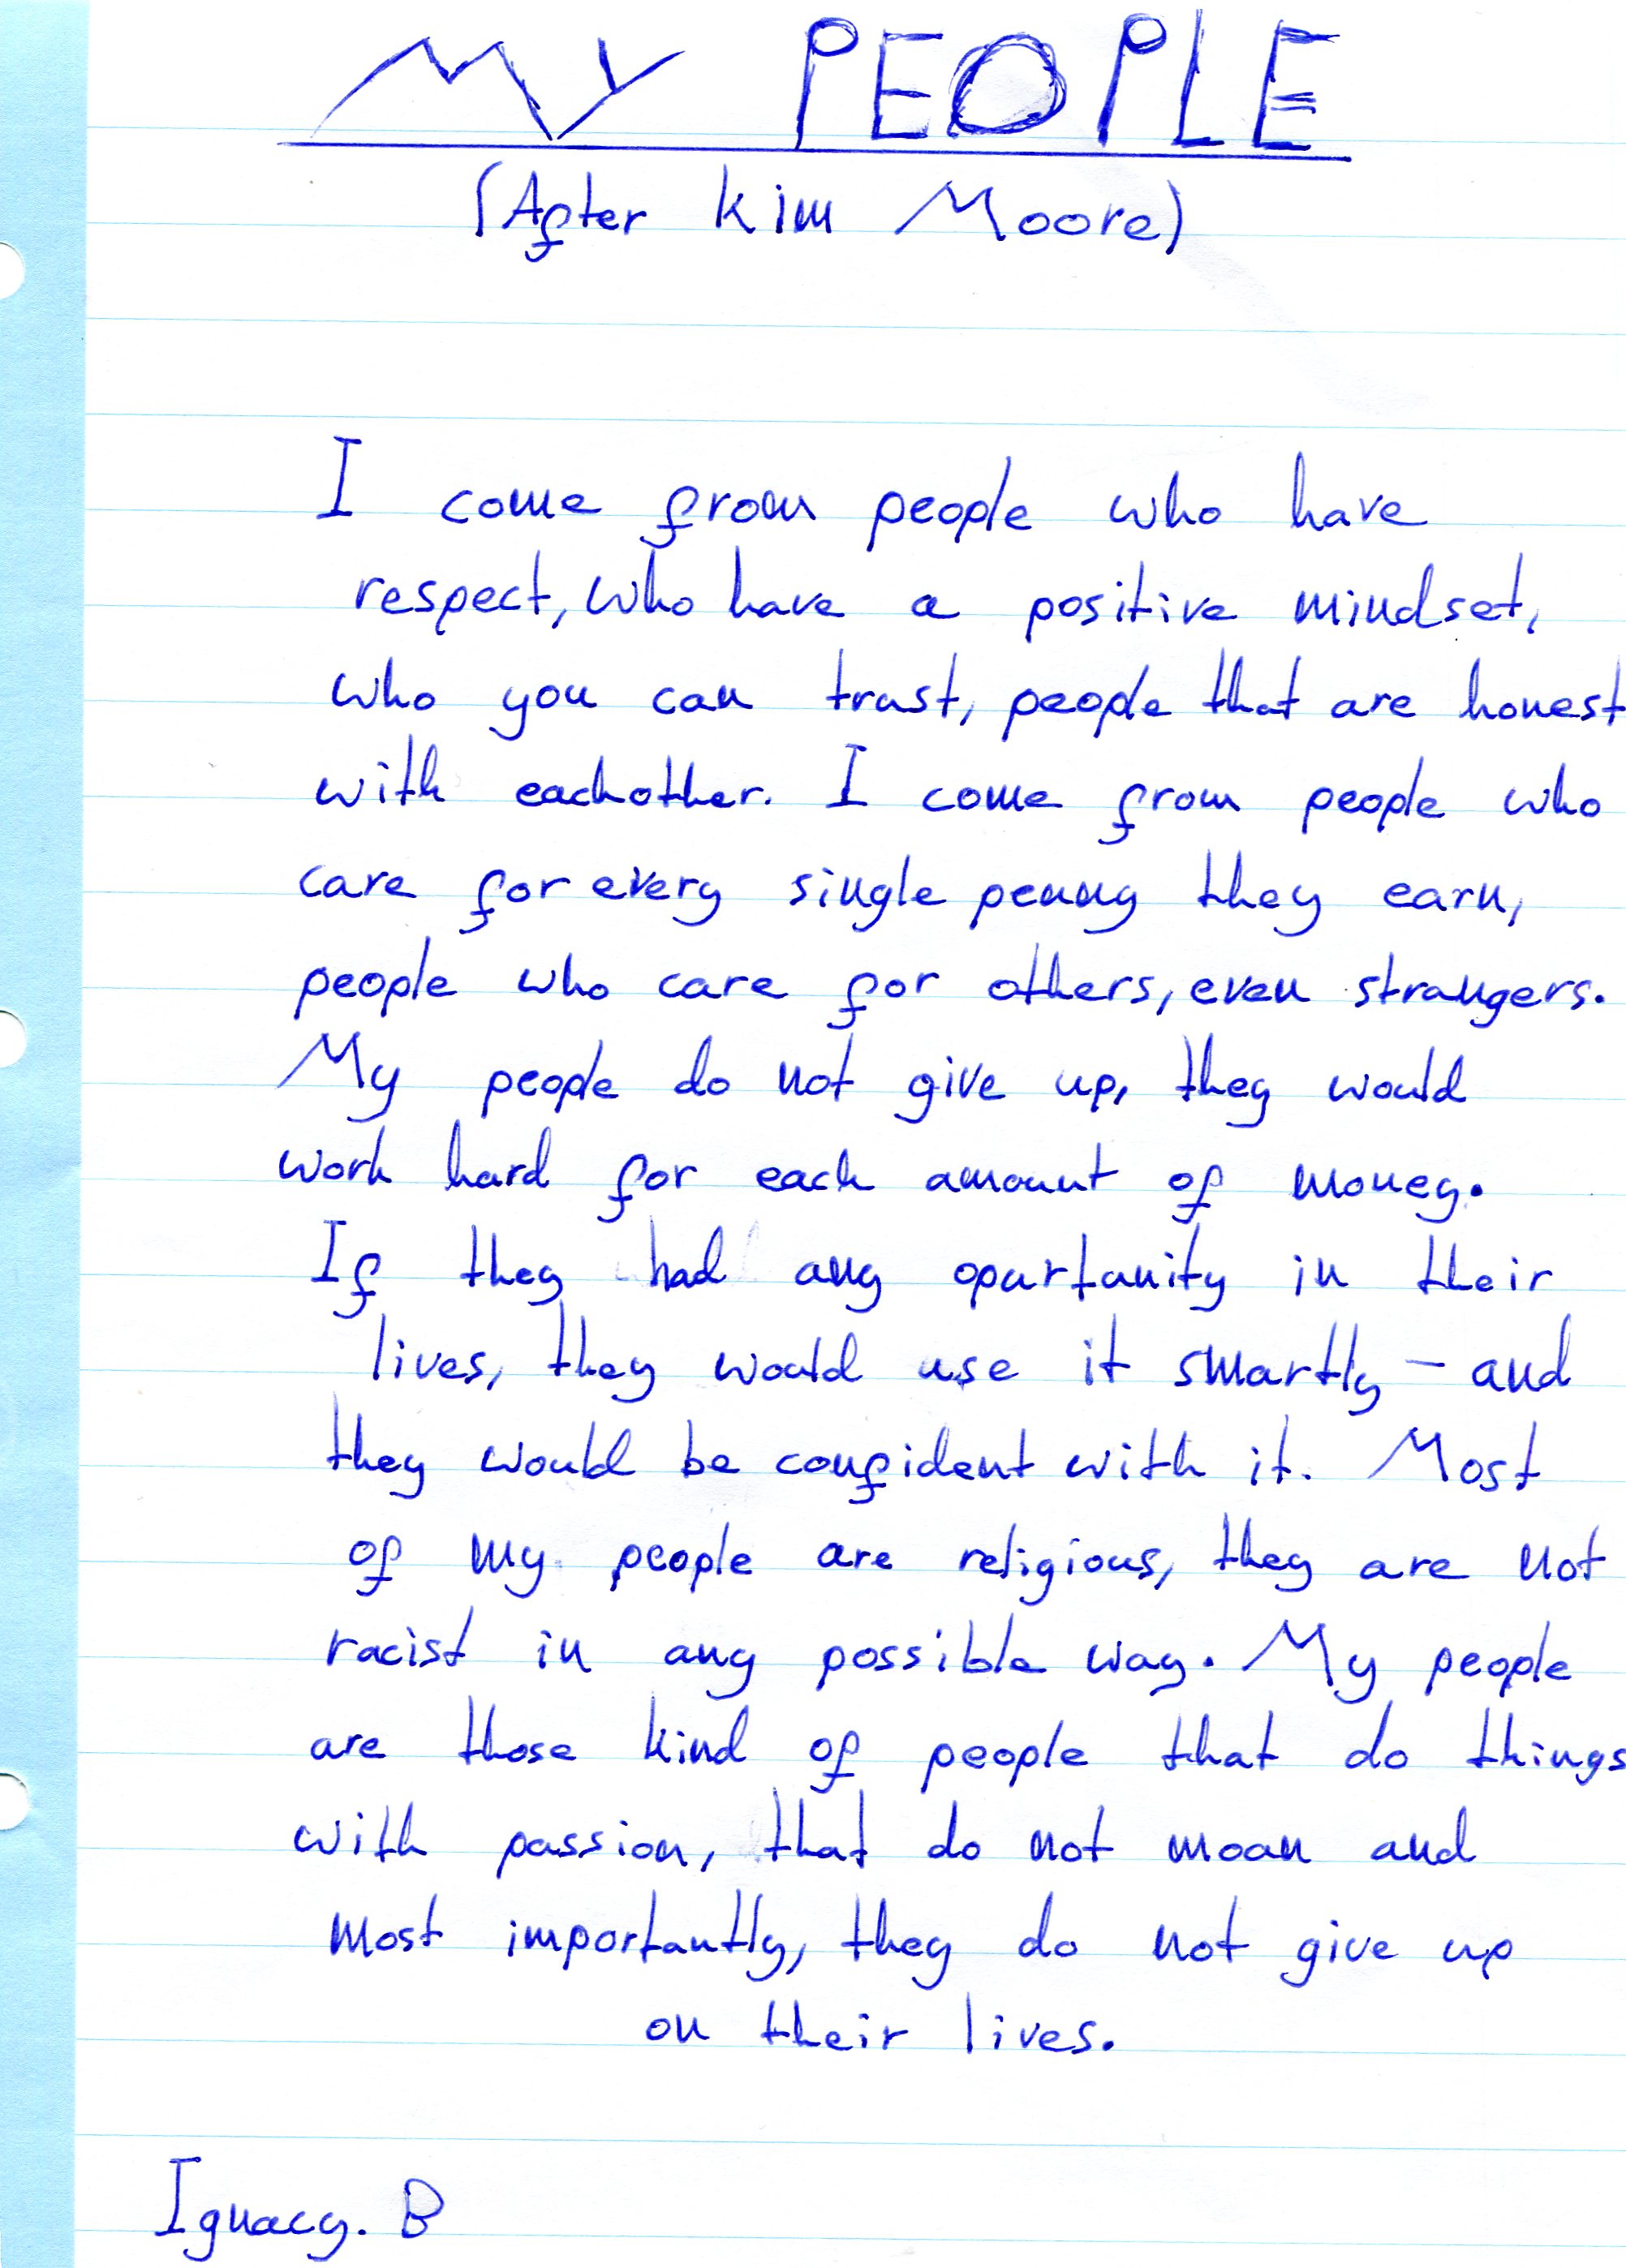 MY PEOPLE
(After Kim Moore)
I come from people who have
respect, who have a positive mindset,
who you can trust, people that are honest
with eachother. I come from people who
care for every single penny they earn,
people who care for others, even strangers.
My people do not give up, they would
work hard for each amount of money.
If they had any oportunity in their
lives, they would use it smartly - and
they would be confident with it. Most
of my people are religious, they are not
racist in any possible way. My people
are those kind of people that do things
with passion, that do not moan and
most importantly, they do not give up
on their lives.
Ignacy. B